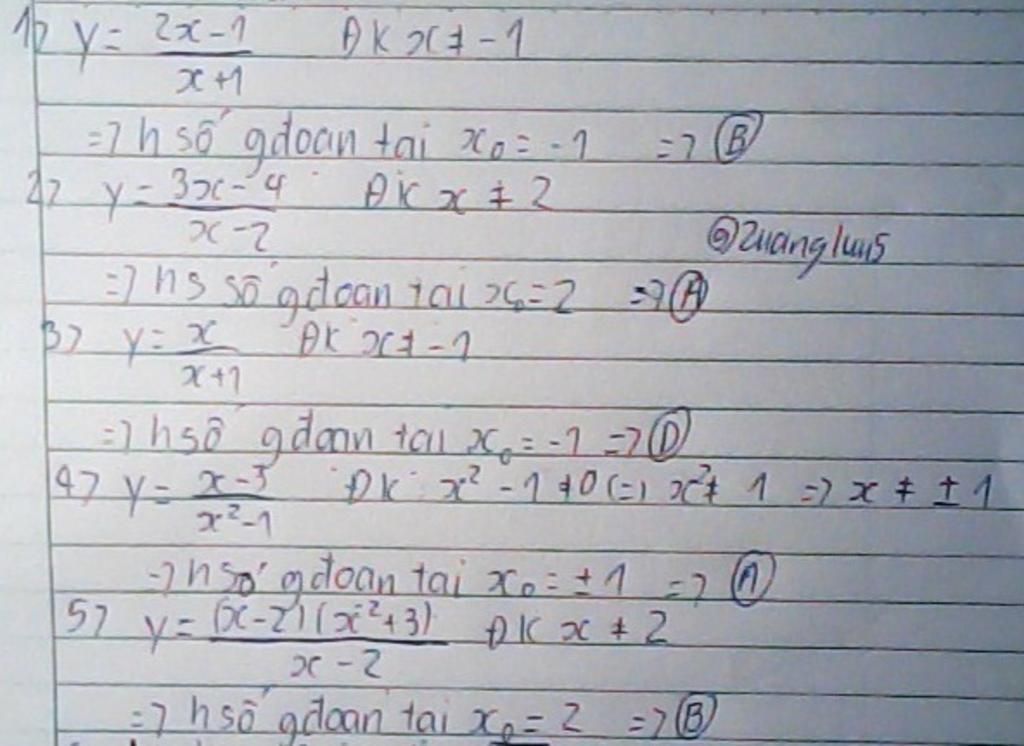 1) y = (2x-1)/(x+1) ĐK x ≠ -1
=> h số gđoan tai x₀ = -1 => Ⓑ
2) y = (3x-4)/(x-2) ĐK x ≠ 2
=> hs số gđoan tai x₀ = 2 => Ⓐ
3) y = x/(x+1) ĐK x ≠ -1
=> h số gđoan tai x₀ = -1 => Ⓓ
4) y = (x-3)/(x²-1) ĐK x² - 1 ≠ 0 (=) x² ≠ 1 => x ≠ ± 1
=> h số gđoan tai x₀ = ± 1 => Ⓐ
5) y = (x-2)(x²+3)/(x-2) ĐK x ≠ 2
=> h số gđoan tai x₀ = 2 => Ⓑ